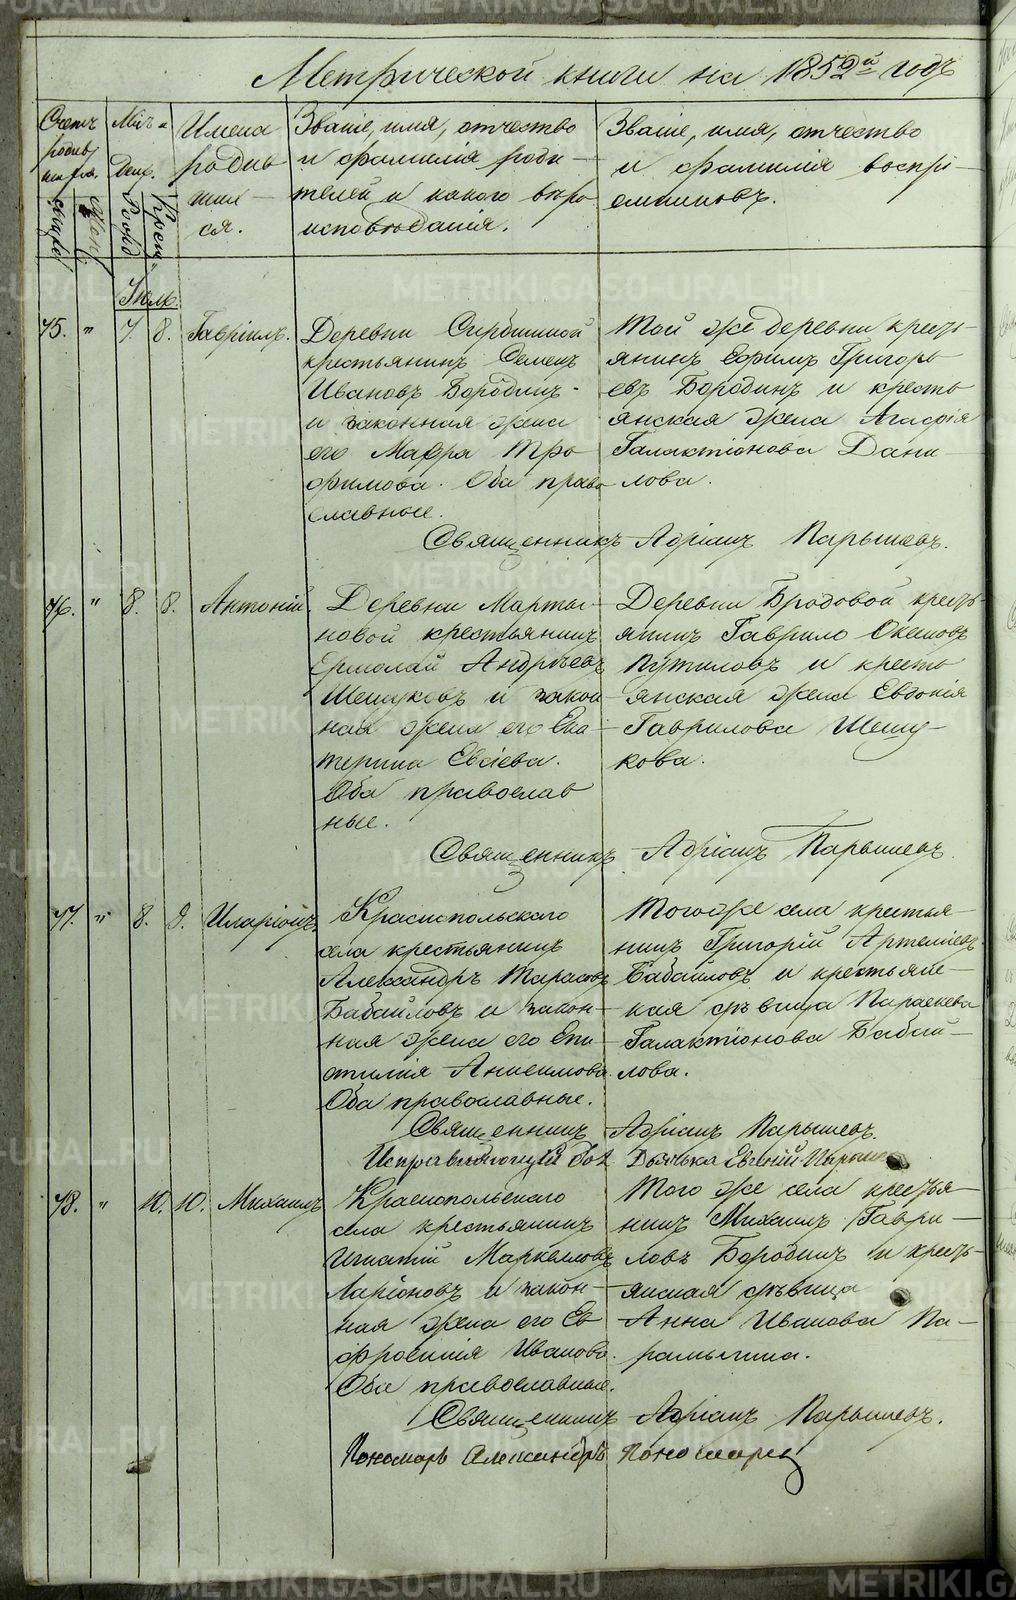 Метрической книги на 1859й годъ
Счетъ родившихъ. мужс. женс.
Мѣс. и День. Рожд. Крещ.
Имена родив шихся.
Званіе, имя, отчество и фамилія роди- телей и какого вѣро исповѣданія.
Званіе, имя, отчество и фамилія воспрі- емниковъ.
Іюль.
75. " 7. 8. Гавріилъ.
Деревни
крестьянинъ Семенъ
Ивановъ Бородинъ-
и законная жена
его Мавра Тро
фимова. Оба право
славные.
Той же деревни кресть-
янинъ Ефимъ Григорь-
евъ Бородинъ и кресть
янская жена Агафія
Галактіонова Дани-
лова.
Священникъ Адріанъ Парышевъ.
76. " 8. 8. Антоній.
Деревни Марты-
новой крестьянинъ
Ермолай Андреевъ
Шешуковъ и закон
ная жена его Ека-
терина Евсіева.
Оба православ
ные.
Деревни Бродовой кресть-
янинъ Гаврило
Путиловъ и кресть
янская жена Евгенія
Гаврилова Шешу-
кова.
Священникъ Адріанъ Парышевъ.
77. " 8. 9. Иларіонъ.
Краснопольскаго
села крестьянинъ
Александръ Тарасовъ
Бабайловъ и закон-
ная жена его Епи
стилія Анисимова.
Оба православные.
Того же села крестья-
нинъ Григорій Артеміев.
Бабайловъ и крестьянс-
кая дѣвица Параскева
Галактіонова Бабай-
лова.
Священникъ Адріанъ Парышевъ.
Исправляющій дол. Дьячька Евгеній Парышев
78. " 10. 10. Михаилъ
Краснопольскаго
села крестьянинъ
Игнатій Маркелловъ
Ларіоновъ и закон-
ная жена его Ев
фросинія Иванова.
Оба православные.
Того же села крестья-
нинъ Михаилъ Гаври-
ловъ Бородинъ и кресть-
янская дѣвица
Анна Иванова Па-
рамыгина.
Священникъ Адріанъ Парышевъ.
Пономарь Александръ Пономарев
METRIKI.GASO-URAL.RU